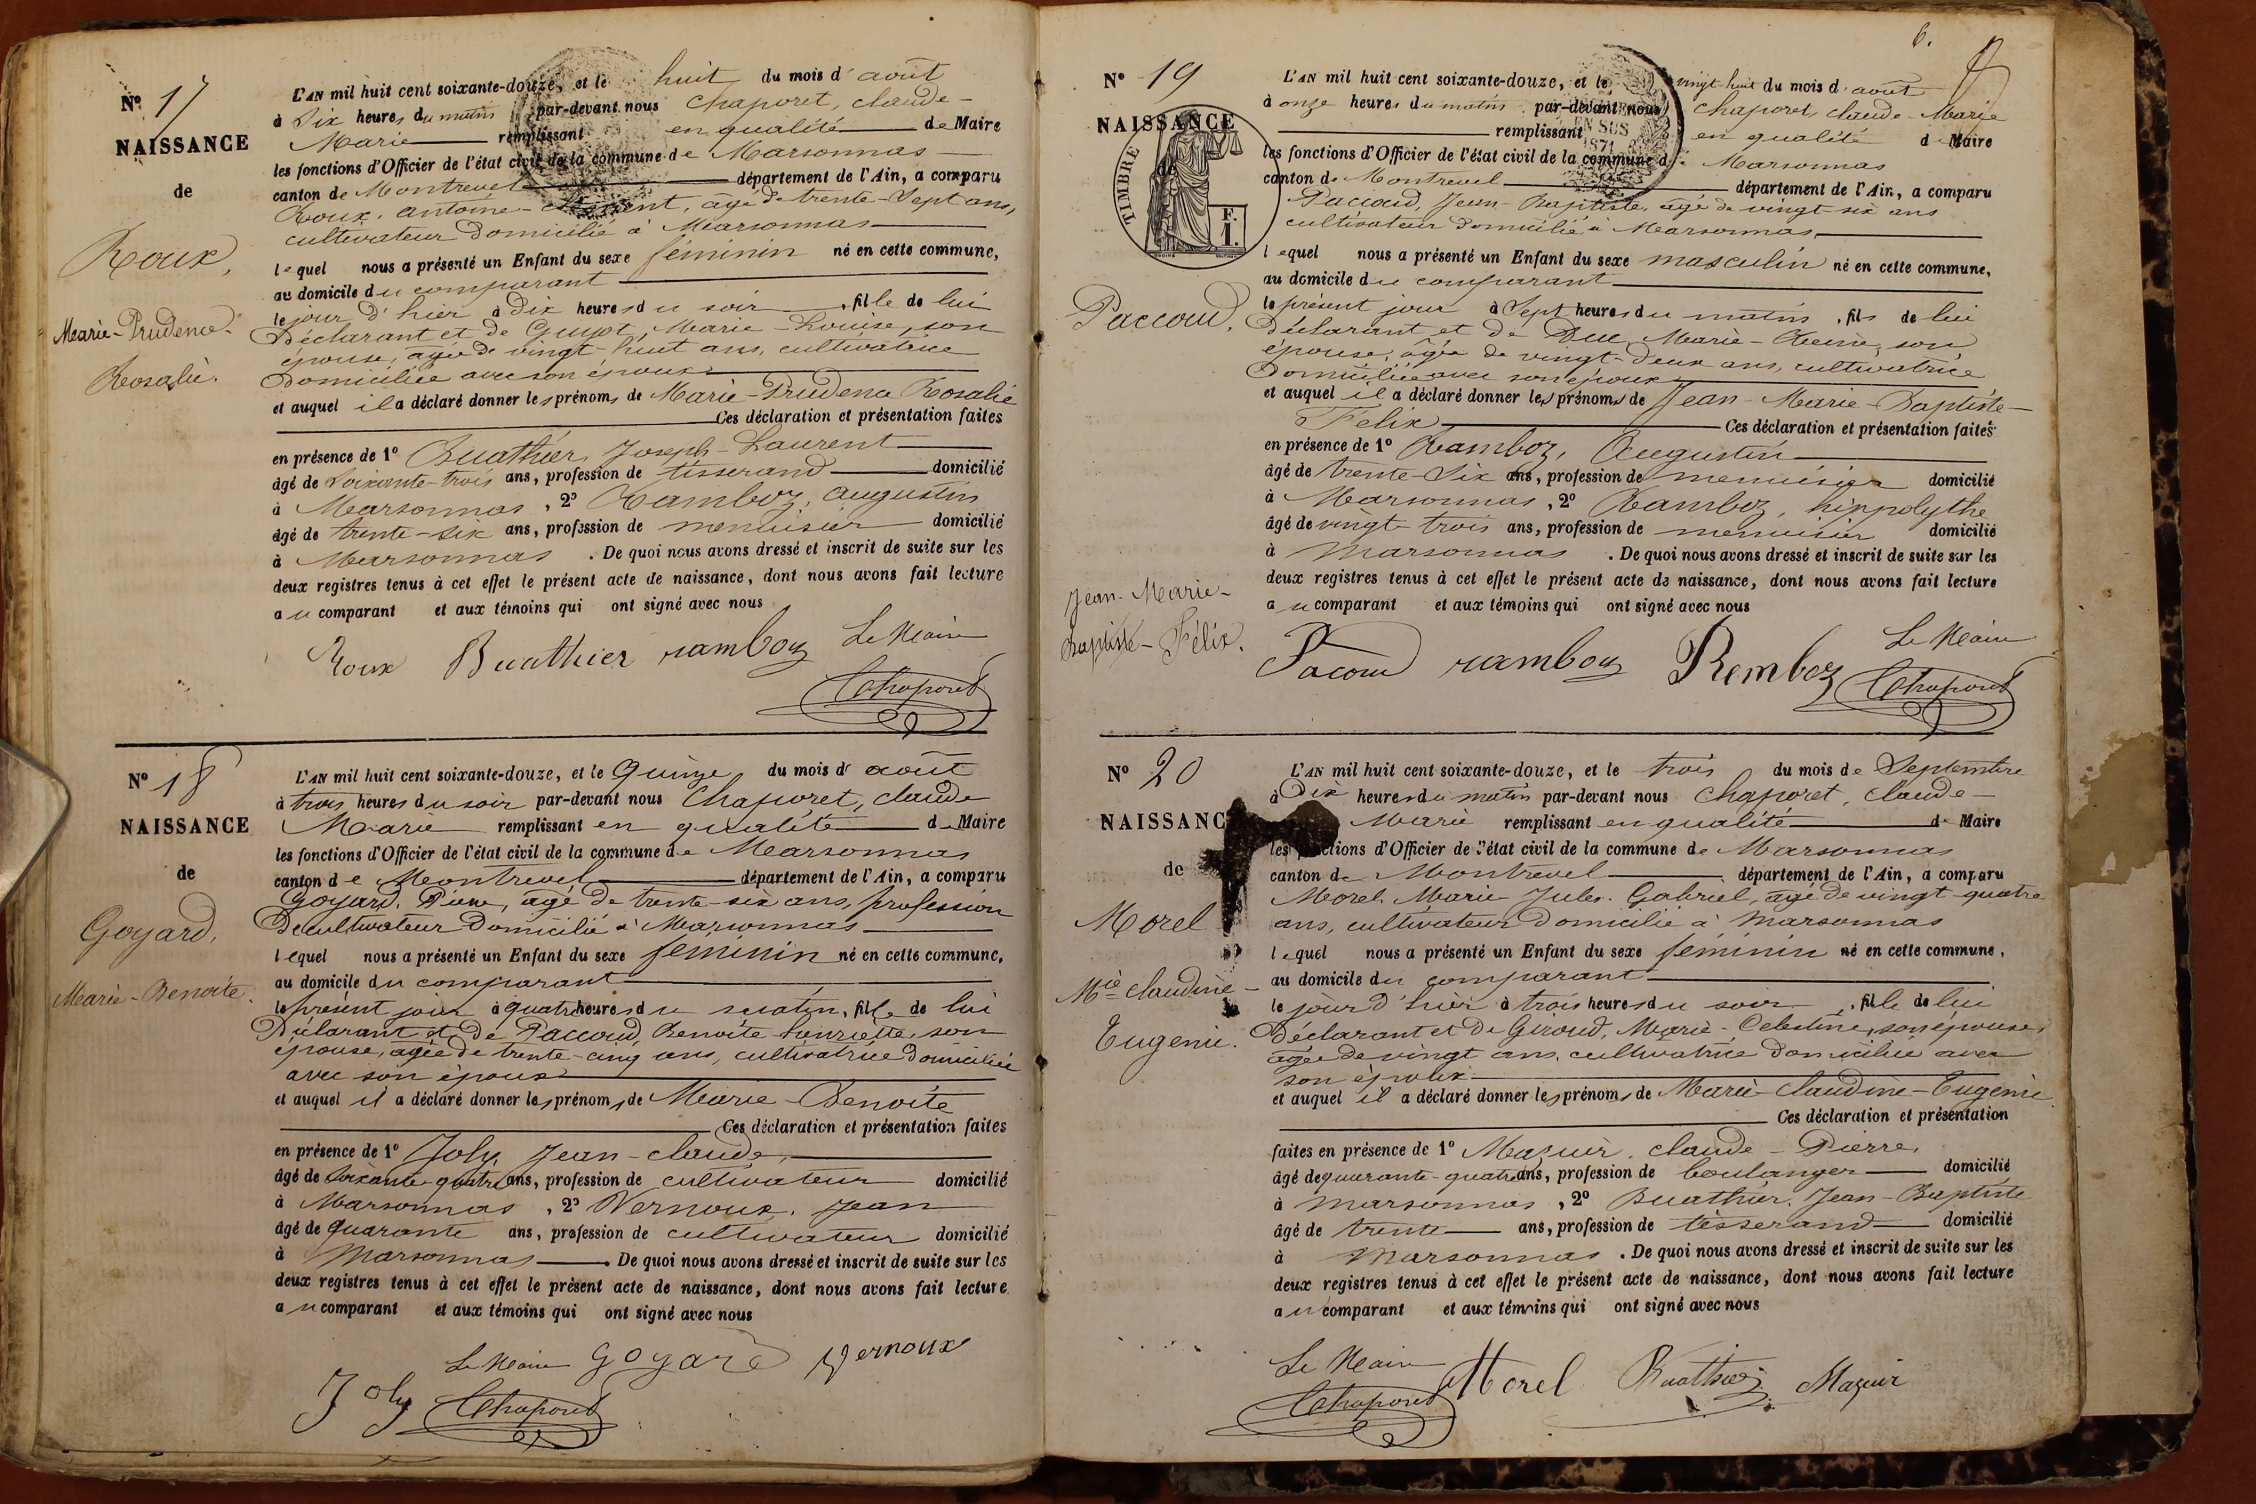 N° 17
NAISSANCE
de
Roux,
Marie-Prudence
Rosalie.
L'AN mil huit cent soixante-douze, et le huit du mois d'août
à Six heures du matin par-devant nous Chaporet, Claude-
Marie remplissant en qualité de Maire
les fonctions d'Officier de l'état civil de la commune de Marsonnas
canton de Montrevel département de l'Ain, a comparu
Roux, antoine-Clément, âgé de trente-Sept ans,
cultivateur domicilié à Marsonnas
lequel nous a présenté un Enfant du sexe féminin né en cette commune,
au domicile du comparant
le jour d'hier à Dix heures du soir, fille de lui
Déclarant et de Guyot, Marie-Louise, son
épouse, agée de vingt-huit ans, cultivatrice
Domiciliée avec son époux
et auquel il a déclaré donner les prénoms de Marie-Prudence Rosalie
Ces déclaration et présentation faites
en présence de 1° Buathier, Joseph-Laurent
âgé de Soixante-trois ans, profession de tisserand domicilié
à Marsonnas, 2° Ramboz, augustin
âgé de trente-six ans, profession de menuisier domicilié
à Marsonnas. De quoi nous avons dressé et inscrit de suite sur les
deux registres tenus à cet effet le présent acte de naissance, dont nous avons fait lecture
au comparant et aux témoins qui ont signé avec nous
Roux Buathier ramboz Le Maire
Chaporet
N° 18
NAISSANCE
de
Goyard,
Marie-Benoite.
L'AN mil huit cent soixante-douze, et le Quinze du mois d'août
à trois heures du soir par-devant nous Chaporet, claude
Marie remplissant en qualité de Maire
les fonctions d'Officier de l'état civil de la commune de Marsonnas
canton de Montrevel département de l'Ain, a comparu
Goyard, Pierre, agé de trente-six ans, profession
De cultivateur Domicilié à Marsonnas
lequel nous a présenté un Enfant du sexe féminin né en cette commune,
au domicile du comparant
le présent jour à quatre heures du matin, fille de lui
Déclarant et de Paccoud, Benoite henriette, son
épouse, agée de trente-cinq ans, cultivatrice domiciliée
avec son époux
et auquel il a déclaré donner les prénoms de Marie Benoite
Ces déclaration et présentation faites
en présence de 1° Joly, Jean-claude,
âgé de Soixante-quatre ans, profession de cultivateur domicilié
à Marsonnas, 2° Vernoux, Jean
âgé de Quarante ans, profession de cultivateur domicilié
à Marsonnas. De quoi nous avons dressé et inscrit de suite sur les
deux registres tenus à cet effet le présent acte de naissance, dont nous avons fait lecture
au comparant et aux témoins qui ont signé avec nous
Le Maire Goyard Vernoux
Joly Chaporet
6.
N° 19
NAISSANCE
de
TIMBRE
F.
I.
EN SUS
1871
Paccoud.
Jean-Marie-
Baptiste-Félix.
L'AN mil huit cent soixante-douze, et le vingt huit du mois d'août
à onze heures du matin par-devant nous Chaporet, claude-Marie
remplissant en qualité de Maire
les fonctions d'Officier de l'état civil de la commune de Marsonnas
canton de Montrevel département de l'Ain, a comparu
Paccoud, Jean-Baptiste, agé de vingt-six ans
cultivateur domicilié à Marsonnas
lequel nous a présenté un Enfant du sexe masculin né en cette commune,
au domicile du comparant
le présent jour à Sept heures du matin, fils de lui
Déclarant et de Duc, Marie-Reine, son
épouse, âgée de vingt-deux ans, cultivatrice
Domiciliée avec son époux
et auquel il a déclaré donner les prénoms de Jean-Marie-Baptiste-
Félix Ces déclaration et présentation faites
en présence de 1° Ramboz, Augustin
âgé de trente-Six ans, profession de menuisier domicilié
à Marsonnas, 2° Ramboz, hippolythe
âgé de vingt-trois ans, profession de menuisier domicilié
à Marsonnas. De quoi nous avons dressé et inscrit de suite sur les
deux registres tenus à cet effet le présent acte de naissance, dont nous avons fait lecture
au comparant et aux témoins qui ont signé avec nous
Pacoud ramboz Remboz Le Maire
Chaporet
N° 20
NAISSANC
de
Morel
Mie claudine-
Eugenie.
L'AN mil huit cent soixante-douze, et le trois du mois de Septembre
à Dix heures du matin par-devant nous Chaporet, claude-
Marie remplissant en qualité de Maire
les fonctions d'Officier de l'état civil de la commune de Marsonnas
canton de Montrevel département de l'Ain, a comparu
Morel, Marie Jules Gabriel, agé de vingt-quatre
ans, cultivateur domicilié à Marsonnas
lequel nous a présenté un Enfant du sexe féminin né en cette commune,
au domicile du comparant
le jour d'hier à trois heures du soir, fille de lui
Déclarant et de Giroud, Marie-Celestine, son épouse,
agée de vingt ans, cultivatrice domiciliée avec
son époux
et auquel il a déclaré donner les prénoms de Marie-claudine-Eugenie
Ces déclaration et présentation
faites en présence de 1° Mazuir, claude-Pierre,
âgé de quarante-quatre ans, profession de boulanger domicilié
à Marsonnas, 2° Buathier, Jean-Baptiste
âgé de trente ans, profession de tisserand domicilié
à Marsonnas. De quoi nous avons dressé et inscrit de suite sur les
deux registres tenus à cet effet le présent acte de naissance, dont nous avons fait lecture
au comparant et aux témoins qui ont signé avec nous
Le Maire Morel Buathier Mazuir
Chaporet